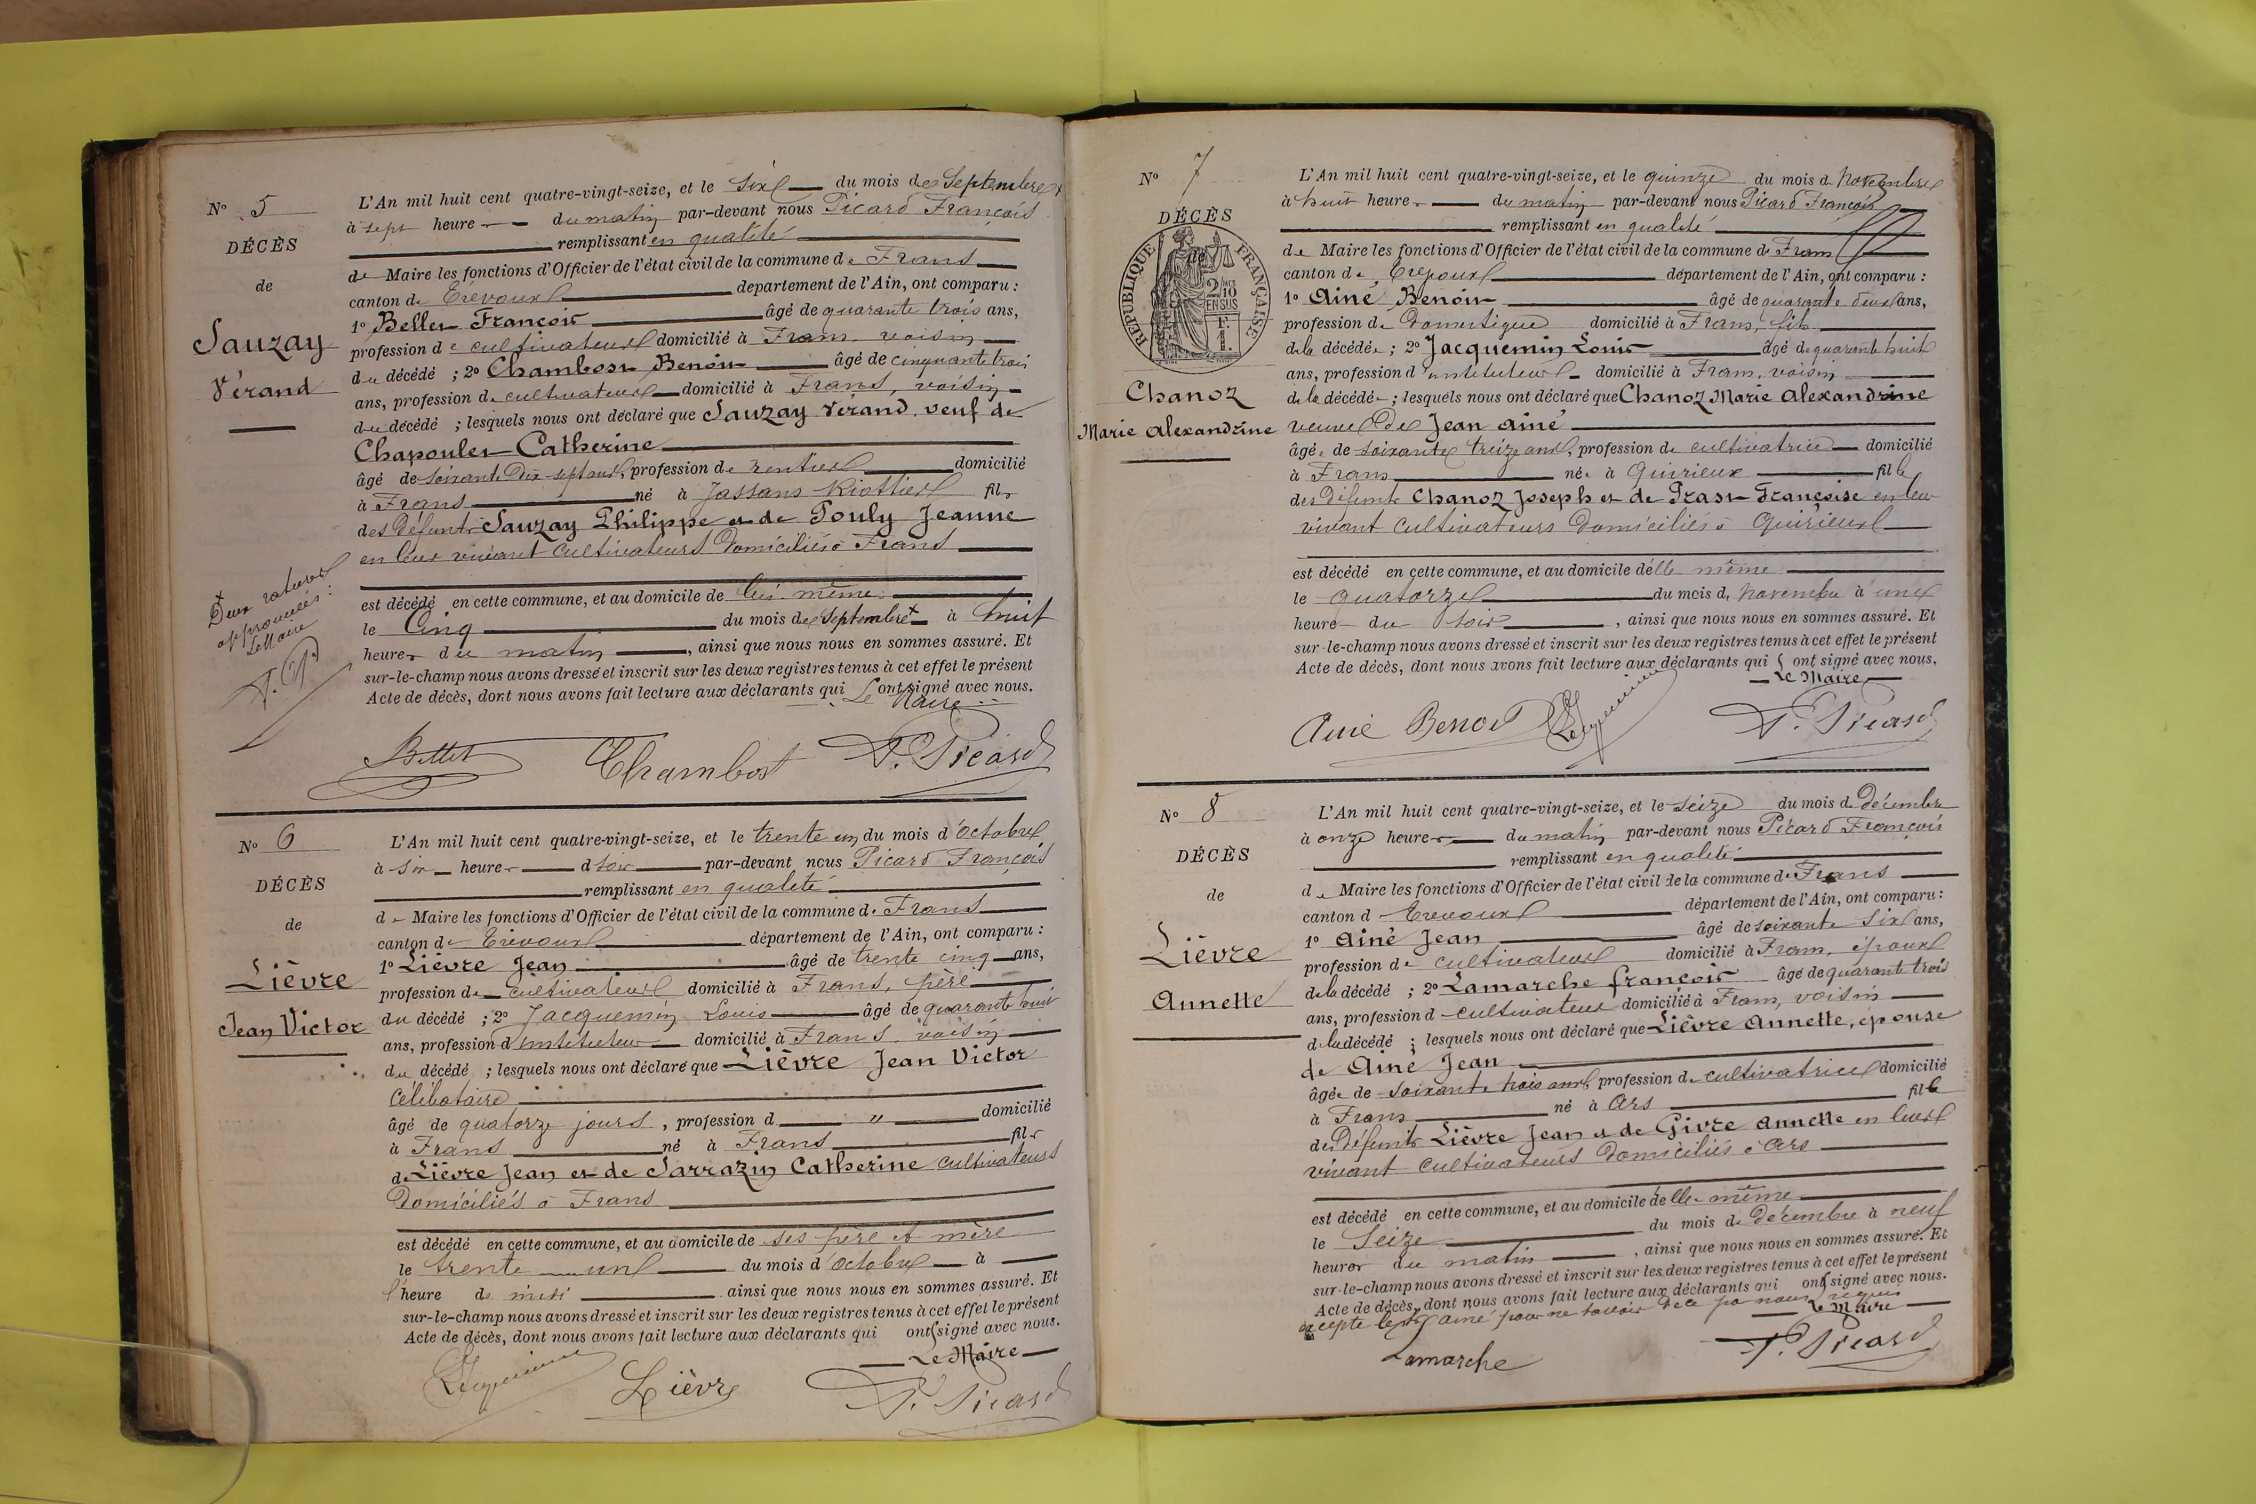 N° 5
DÉCÈS
de
Sauzay
Vérand
L'An mil huit cent quatre-vingt-seize, et le six du mois de Septembre
à sept heures du matin par-devant nous Picard François
remplissant en qualité
de Maire les fonctions d'Officier de l'état civil de la commune de Frans
canton de Trévoux département de l'Ain, ont comparu :
1° Bellet François âgé de quarante trois ans,
profession de cultivateur domicilié à Frans, voisin
du décédé ; 2° Chambost Benoit âgé de cinquante trois
ans, profession de cultivateur domicilié à Frans, voisin
du décédé ; lesquels nous ont déclaré que Sauzay Vérand, veuf de
Chapoulet Catherine
âgé de soixante dix-sept ans, profession de rentier domicilié
à Frans né à Jassans Riottier fils
des défunts Sauzay Philippe et de Pouly Jeanne
en leur vivant cultivateurs domiciliés à Frans
est décédé en cette commune, et au domicile de lui-même
le Cinq du mois de Septembre à huit
heures du matin, ainsi que nous nous en sommes assuré. Et
sur-le-champ nous avons dressé et inscrit sur les deux registres tenus à cet effet le présent
Acte de décès, dont nous avons fait lecture aux déclarants qui ont signé avec nous.
Le Maire
Deux ratures
approuvées :
Le Maire
Bellet Chambost F. Picard
N° 6
DÉCÈS
de
Lièvre
Jean Victor
L'An mil huit cent quatre-vingt-seize, et le trente un du mois d'Octobre
à six heures d soir par-devant nous Picard François
remplissant en qualité
de Maire les fonctions d'Officier de l'état civil de la commune de Frans
canton de Trévoux département de l'Ain, ont comparu :
1° Lièvre Jean âgé de trente cinq ans,
profession de cultivateur domicilié à Frans, père
du décédé ; 2° Jacquemin Louis âgé de quarante huit
ans, profession d'instituteur domicilié à Frans, voisin
du décédé ; lesquels nous ont déclaré que Lièvre Jean Victor
Célibataire
âgé de quatorze jours, profession d " domicilié
à Frans né à Frans fils
de Lièvre Jean et de Sarrazin Catherine cultivateurs
domiciliés à Frans
est décédé en cette commune, et au domicile de ses père et mère
le trente un du mois d'Octobre à
l'heure de midi ainsi que nous nous en sommes assuré. Et
sur-le-champ nous avons dressé et inscrit sur les deux registres tenus à cet effet le présent
Acte de décès, dont nous avons fait lecture aux déclarants qui ont signé avec nous.
Le Maire
Jacquemin Lièvre F. Picard
N° 7
DÉCÈS
RÉPUBLIQUE FRANÇAISE
2/10
EN SUS
F.
1.
Chanoz
Marie Alexandrine
L'An mil huit cent quatre-vingt-seize, et le quinze du mois de Novembre
à huit heures du matin par-devant nous Picard François
remplissant en qualité
de Maire les fonctions d'Officier de l'état civil de la commune de Frans
canton de Trévoux département de l'Ain, ont comparu :
1° Ainé Benoit âgé de quarante deux ans,
profession de Domestique domicilié à Frans, fils
de la décédée ; 2° Jacquemin Louis âgé de quarante huit
ans, profession d'instituteur domicilié à Frans, voisin
de la décédée ; lesquels nous ont déclaré que Chanoz Marie Alexandrine
veuve de Jean Ainé
âgée de soixante treize ans, profession de cultivatrice domicilié
à Frans née à Quirieux fille
des défunts Chanoz Joseph et de Prast Françoise en leur
vivant cultivateurs domiciliés à Quirieux
est décédé en cette commune, et au domicile d'elle même
le quatorze du mois de Novembre à une
heure du soir, ainsi que nous nous en sommes assuré. Et
sur-le-champ nous avons dressé et inscrit sur les deux registres tenus à cet effet le présent
Acte de décès, dont nous avons fait lecture aux déclarants qui ont signé avec nous.
Le Maire
Ainé Benoit Jacquemin F. Picard
N° 8
DÉCÈS
de
Lièvre
Annette
L'An mil huit cent quatre-vingt-seize, et le seize du mois de Décembre
à onze heures du matin par-devant nous Picard François
remplissant en qualité
de Maire les fonctions d'Officier de l'état civil de la commune de Frans
canton d Trévoux département de l'Ain, ont comparu :
1° Ainé Jean âgé de soixante six ans,
profession de cultivateur domicilié à Frans, époux
de la décédé ; 2° Lamarche François âgé de quarante trois
ans, profession d cultivateur domicilié à Frans, voisin
de la décédé ; lesquels nous ont déclaré que Lièvre Annette, épouse
de Ainé Jean
âgée de soixante trois ans, profession de cultivatrice domicilié
à Frans né à Ars fille
des défunts Lièvre Jean et de Givre Annette en leur
vivant cultivateurs domiciliés à Ars
est décédé en cette commune, et au domicile d'elle-même
le Seize du mois de Décembre à neuf
heures du matin, ainsi que nous nous en sommes assuré. Et
sur-le-champ nous avons dressé et inscrit sur les deux registres tenus à cet effet le présent
Acte de décès, dont nous avons fait lecture aux déclarants qui ont signé avec nous.
excepté le Sr Ainé pour ne savoir de ce par nous requis
Le Maire
Lamarche F. Picard